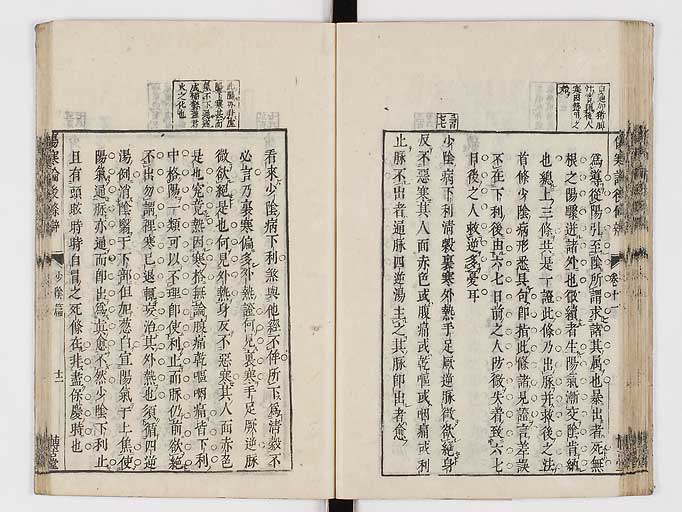 為導從陽引至陰所謂求諸其屬也暴出者死無
根之陽驟迸諸外也微續者生陽氣漸交陰肯納
也總上三條共是一證此條乃出脉并救後之法
首條少陰病形悉具句即指此條諸見證言差誤
不在下利後由六七日前之人防微失着致六七
日後之人救逆多憂耳
少陰病下利清穀裏寒外熱手足厥逆脉微欲絶身
反不惡寒其人面赤色或腹痛或乾嘔或咽痛或利
止脉不出者通脉四逆湯主之其脉即出者愈
看來少陰病下利無與他經不侔所下為清穀不
必言乃裏寒偏多外熱證何見裏寒手足厥逆脉
微欲絶是也何見外熱身反不惡寒其人面赤色
是也究竟熱因寒格無論腹痛乾嘔咽痛皆下利
中格陽一類可以不理即使利止而脉仍前欲絶
不出勿謂裡寒已退輒妄治其外熱也須循四逆
湯倒消陰翳于下部但加葱白宣陽氣于上焦使
陽氣通脉亦通而即出為真愈不然少陰下利止
且有頭眩時時自冒之死條在非盡保慶時也
傷寒論後條辨
少陰篇
十二